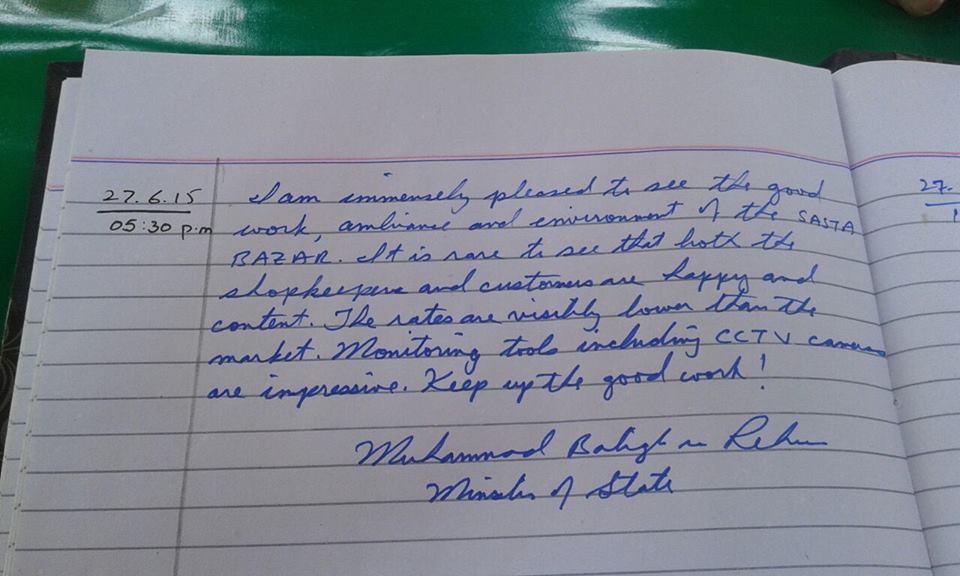 27.6.15
05:30 p.m
I am immensely pleased to see the good
work, ambiance and environment of the SASTA
BAZAR. It is rare to see that both the
shopkeepers and customers are happy and
content. The rates are visibly lower than the
market. Monitoring tools including CCTV cameras
are impressive. Keep up the good work!
Muhammad Baligh ur Rehman
Minister of State
27.